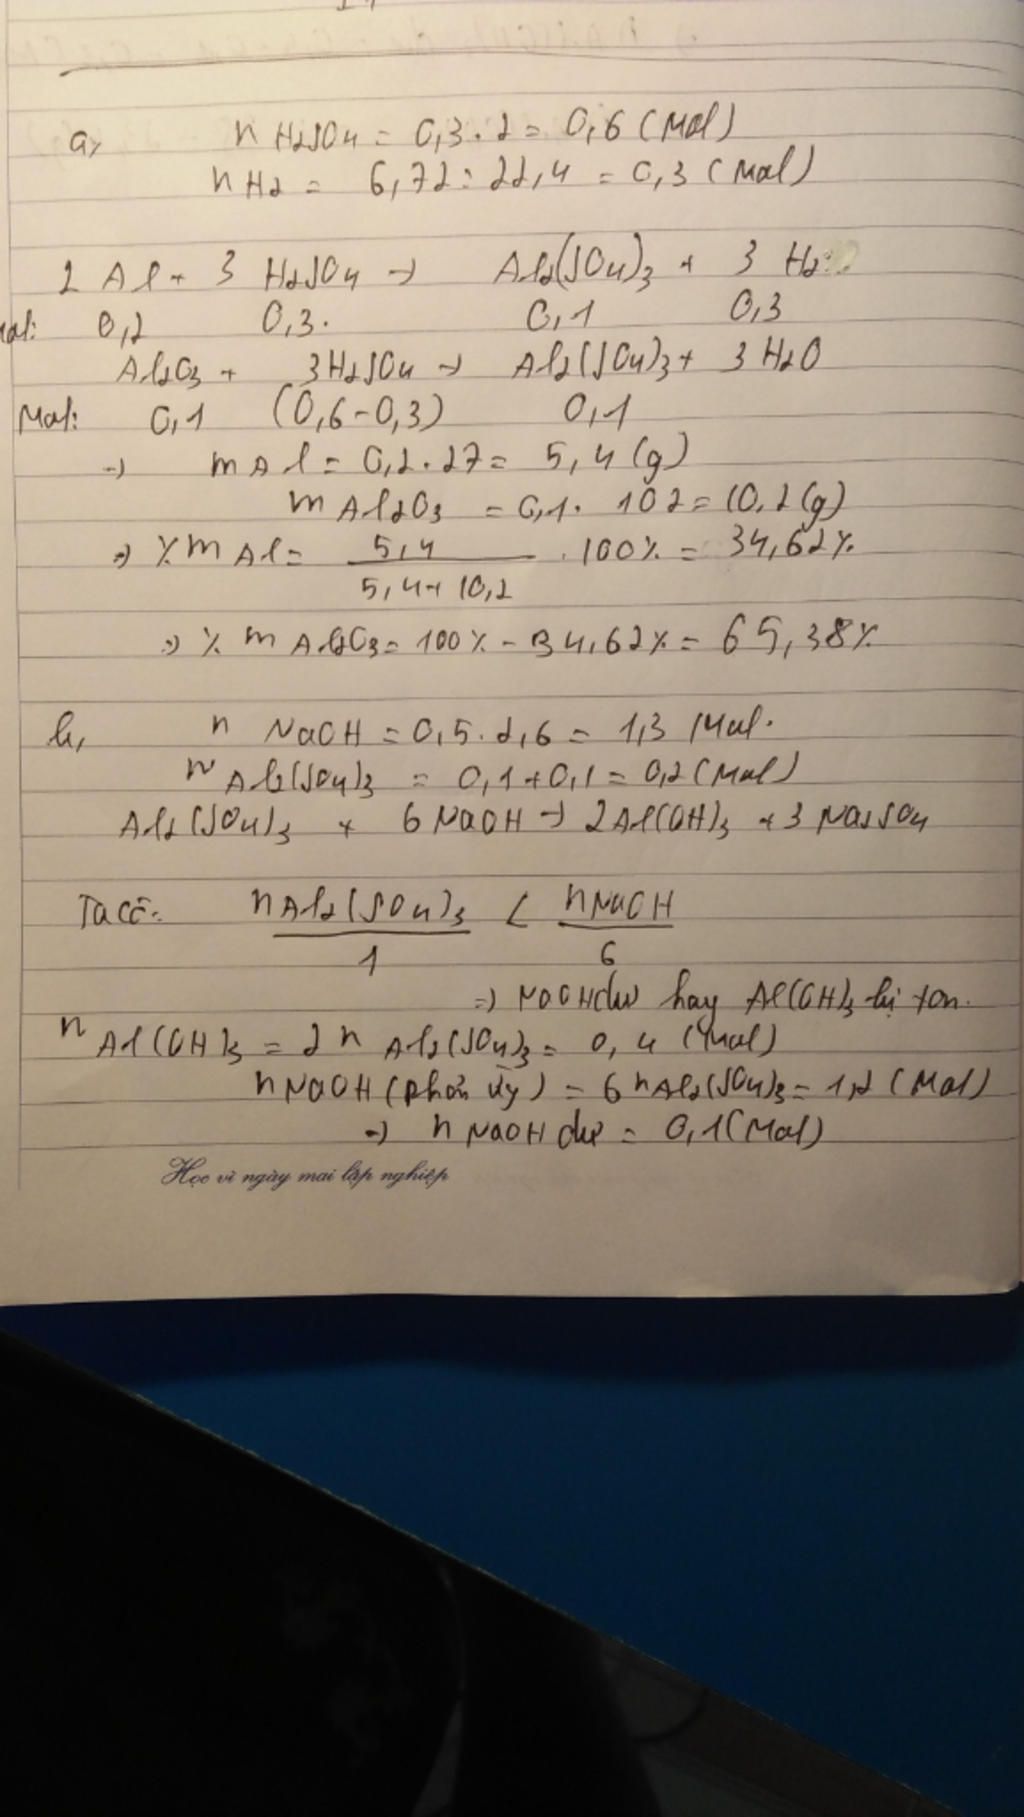 a, nH2SO4 = 0,3.2 = 0,6 (Mol)
nH2 = 6,72 : 22,4 = 0,3 (Mol)
2 Al + 3 H2SO4 → Al2(SO4)3 + 3 H2
Mol: 0,2 0,3. 0,1 0,3
Al2O3 + 3H2SO4 → Al2(SO4)3 + 3 H2O
Mol: 0,1 (0,6-0,3) 0,1
→ mAl = 0,2.27 = 5,4 (g)
mAl2O3 = 0,1. 102 = 10,2 (g)
⇒ %mAl = 5,4 / 5,4+10,2 .100% = 34,62%
⇒ % mAl2O3 = 100% - 34,62% = 65,38%
b, n NaOH = 0,5.2,6 = 1,3 Mol.
nAl2(SO4)3 = 0,1+0,1 = 0,2 (Mol)
Al2(SO4)3 + 6NaOH → 2Al(OH)3 + 3 Na2SO4
Ta có: nAl2(SO4)3 / 1 < nNaOH / 6
⇒ NaOH dư hay Al(OH)3 bị tan.
nAl(OH)3 = 2 nAl2(SO4)3 = 0,4 (Mol)
nNaOH (phản ứng) = 6nAl2(SO4)3 = 1,2 (Mol)
⇒ nNaOH dư = 0,1 (Mol)
Học vì ngày mai lập nghiệp